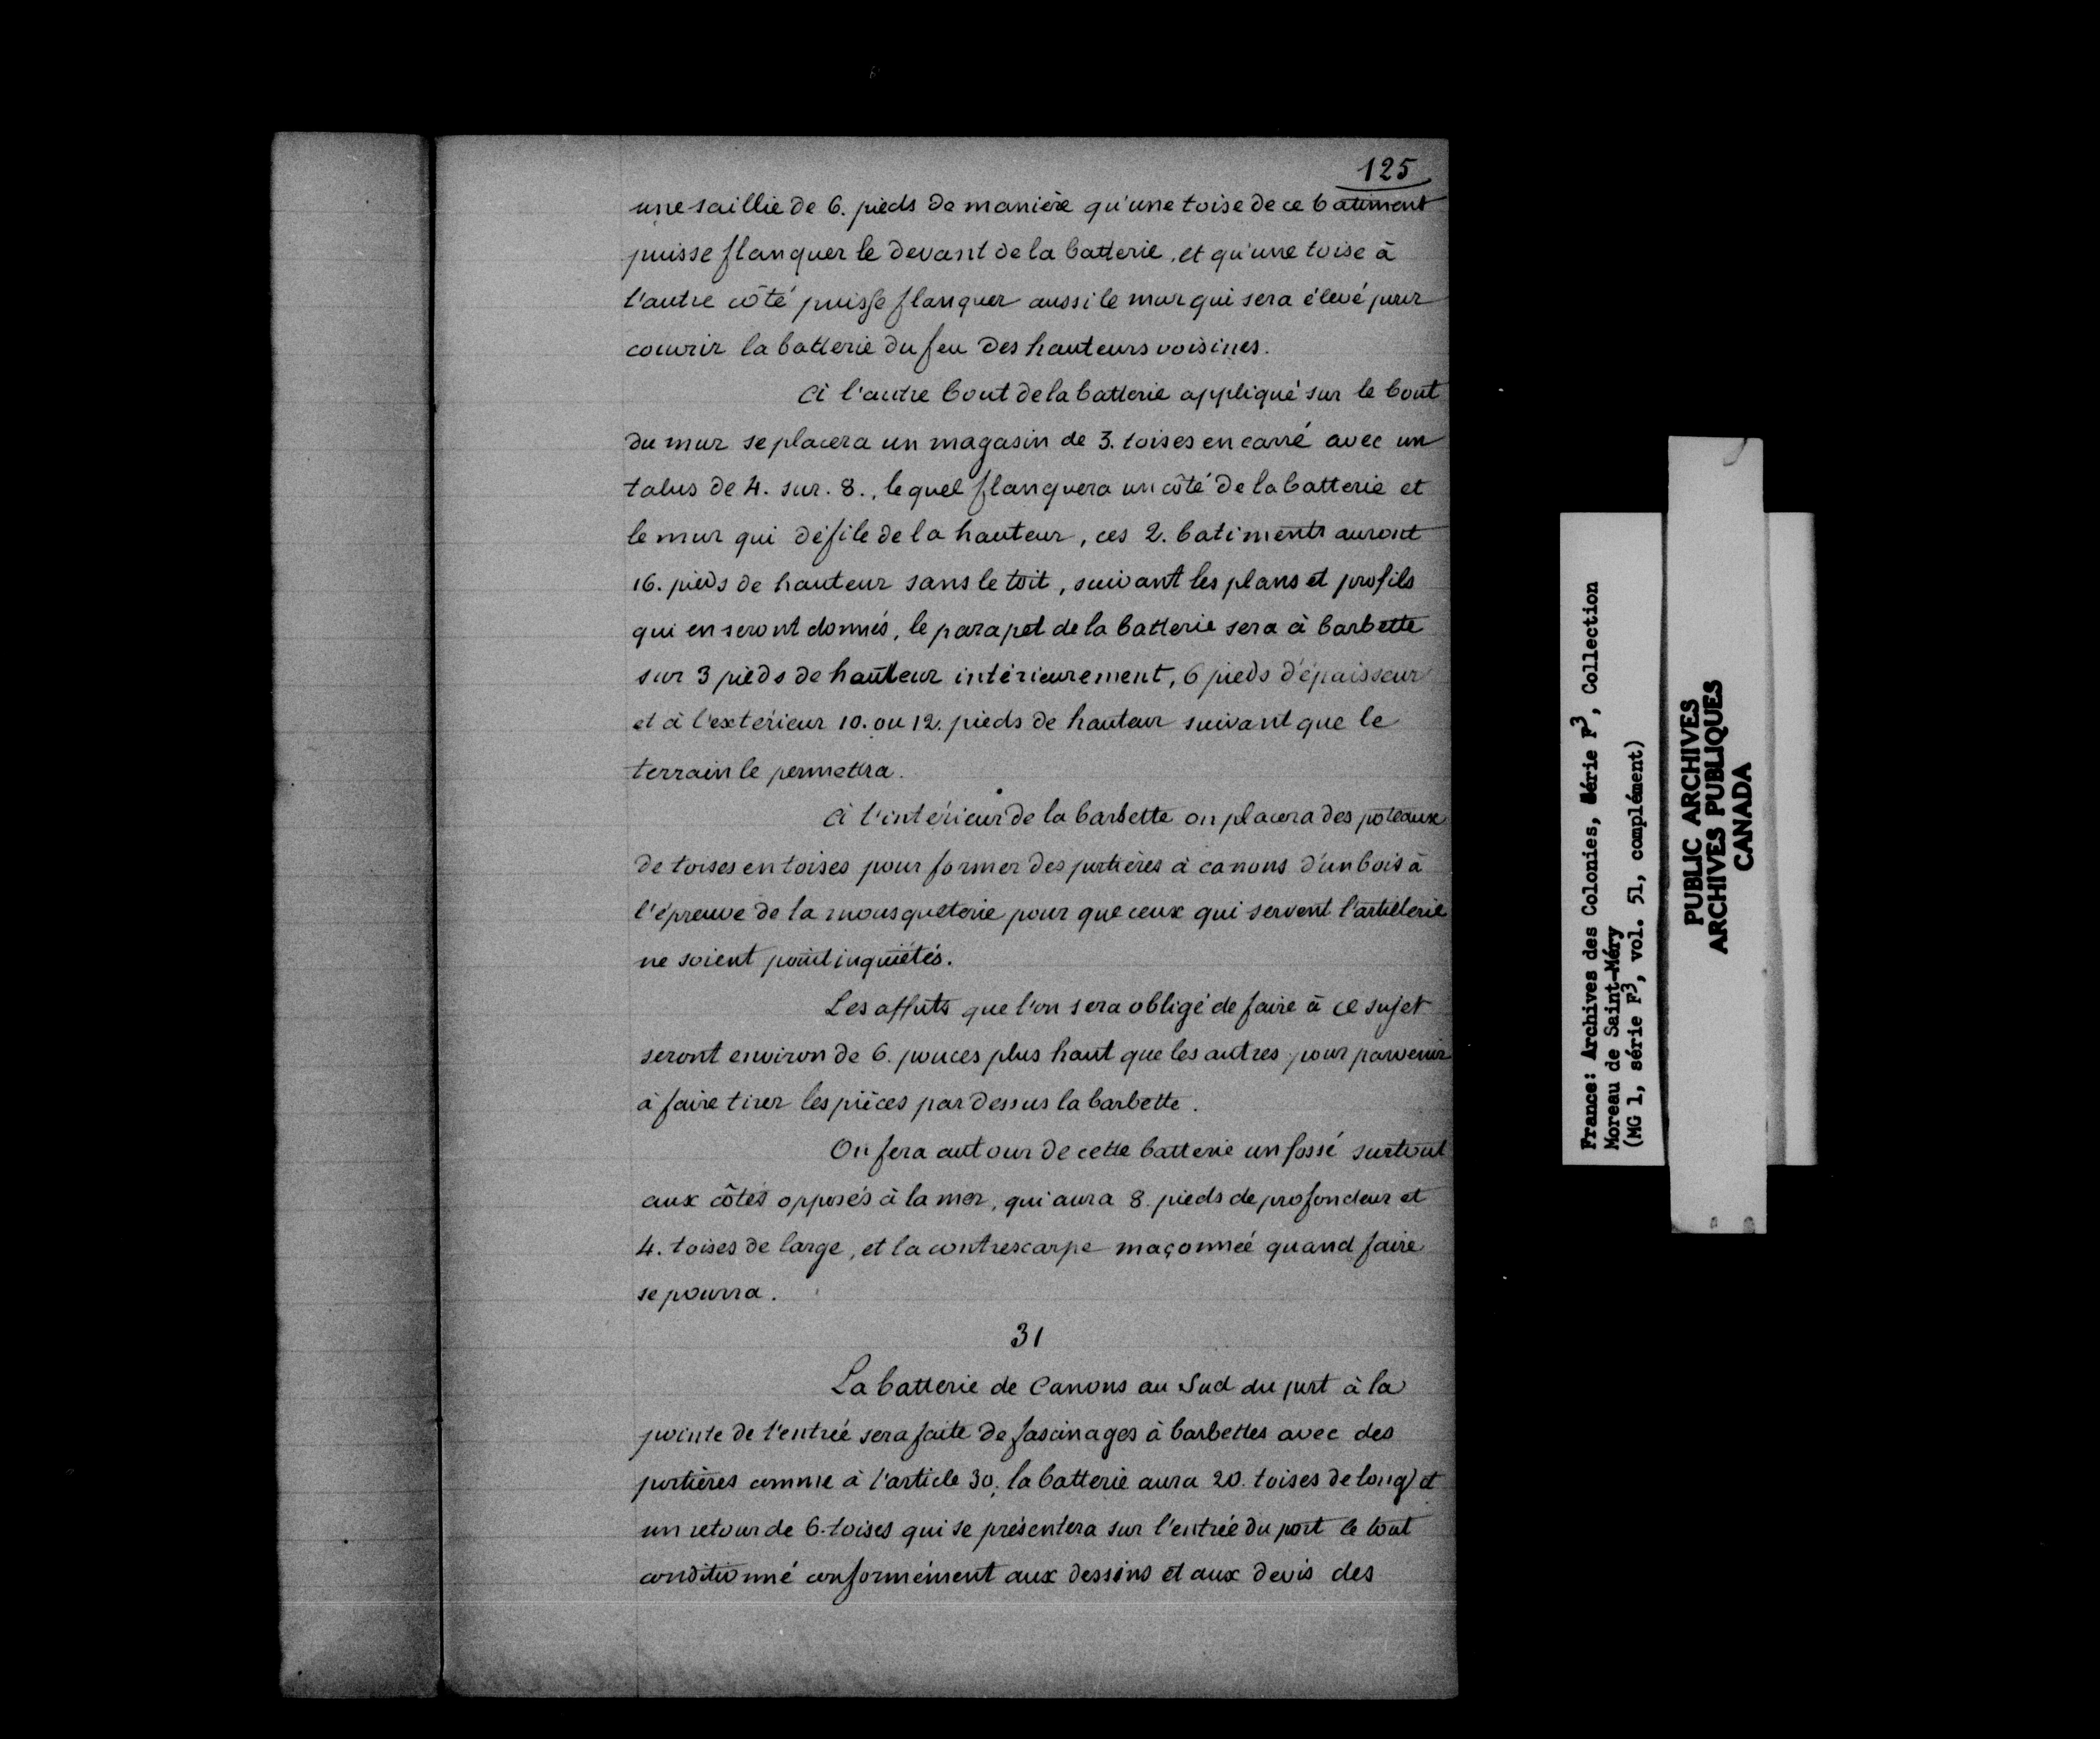 125
une saillie de 6. pieds de manière qu'une toise de ce batiment
puisse flanquer le devant de la batterie, et qu'une toise à
l'autre côté puisse flanquer aussi le mur qui sera élevé pour
couvrir la batterie du feu des hauteurs voisines.
A l'autre bout de la batterie appliqué sur le bout
du mur se placera un magasin de 3. toises en carré avec un
talus de 4. sur. 8., lequel flanquera un côté de la batterie et
le mur qui défile de la hauteur, ces 2. batiments auront
16. pieds de hauteur sans le toit, suivant les plans et profils
qui en seront donnés, le parapet de la batterie sera à barbette
sur 3 pieds de hauteur intérieurement, 6 pieds d'épaisseur
et à l'extérieur 10. ou 12. pieds de hauteur suivant que le
terrain le permettra.
A l'intérieur de la barbette on placera des poteaux
de toises en toises pour former des portières à canons d'un bois à
l'épreuve de la mousqueterie pour que ceux qui servent l'artillerie
ne soient point inquiétés.
Les affuts que l'on sera obligé de faire à ce sujet
seront environ de 6. pouces plus haut que les autres pour parvenir
à faire tirer les pièces par dessus la barbette.
On fera autour de cette batterie un fossé surtout
aux côtés opposés à la mer, qui aura 8. pieds de profondeur et
4. toises de large, et la contrescarpe maçonneé quand faire
se pourra.
31
La batterie de Canons au Sud du port à la
pointe de l'entrée sera faite de fascinages à barbettes avec des
portières comme à l'article 30, la batterie aura 20. toises de long et
un retour de 6. toises qui se présentera sur l'entrée du port le tout
conditionné conformément aux dessins et aux devis des
France: Archives des Colonies, Série F3, Collection
Moreau de Saint-Méry
(MG 1, série F3, vol. 51, complément)
PUBLIC ARCHIVES
ARCHIVES PUBLIQUES
CANADA